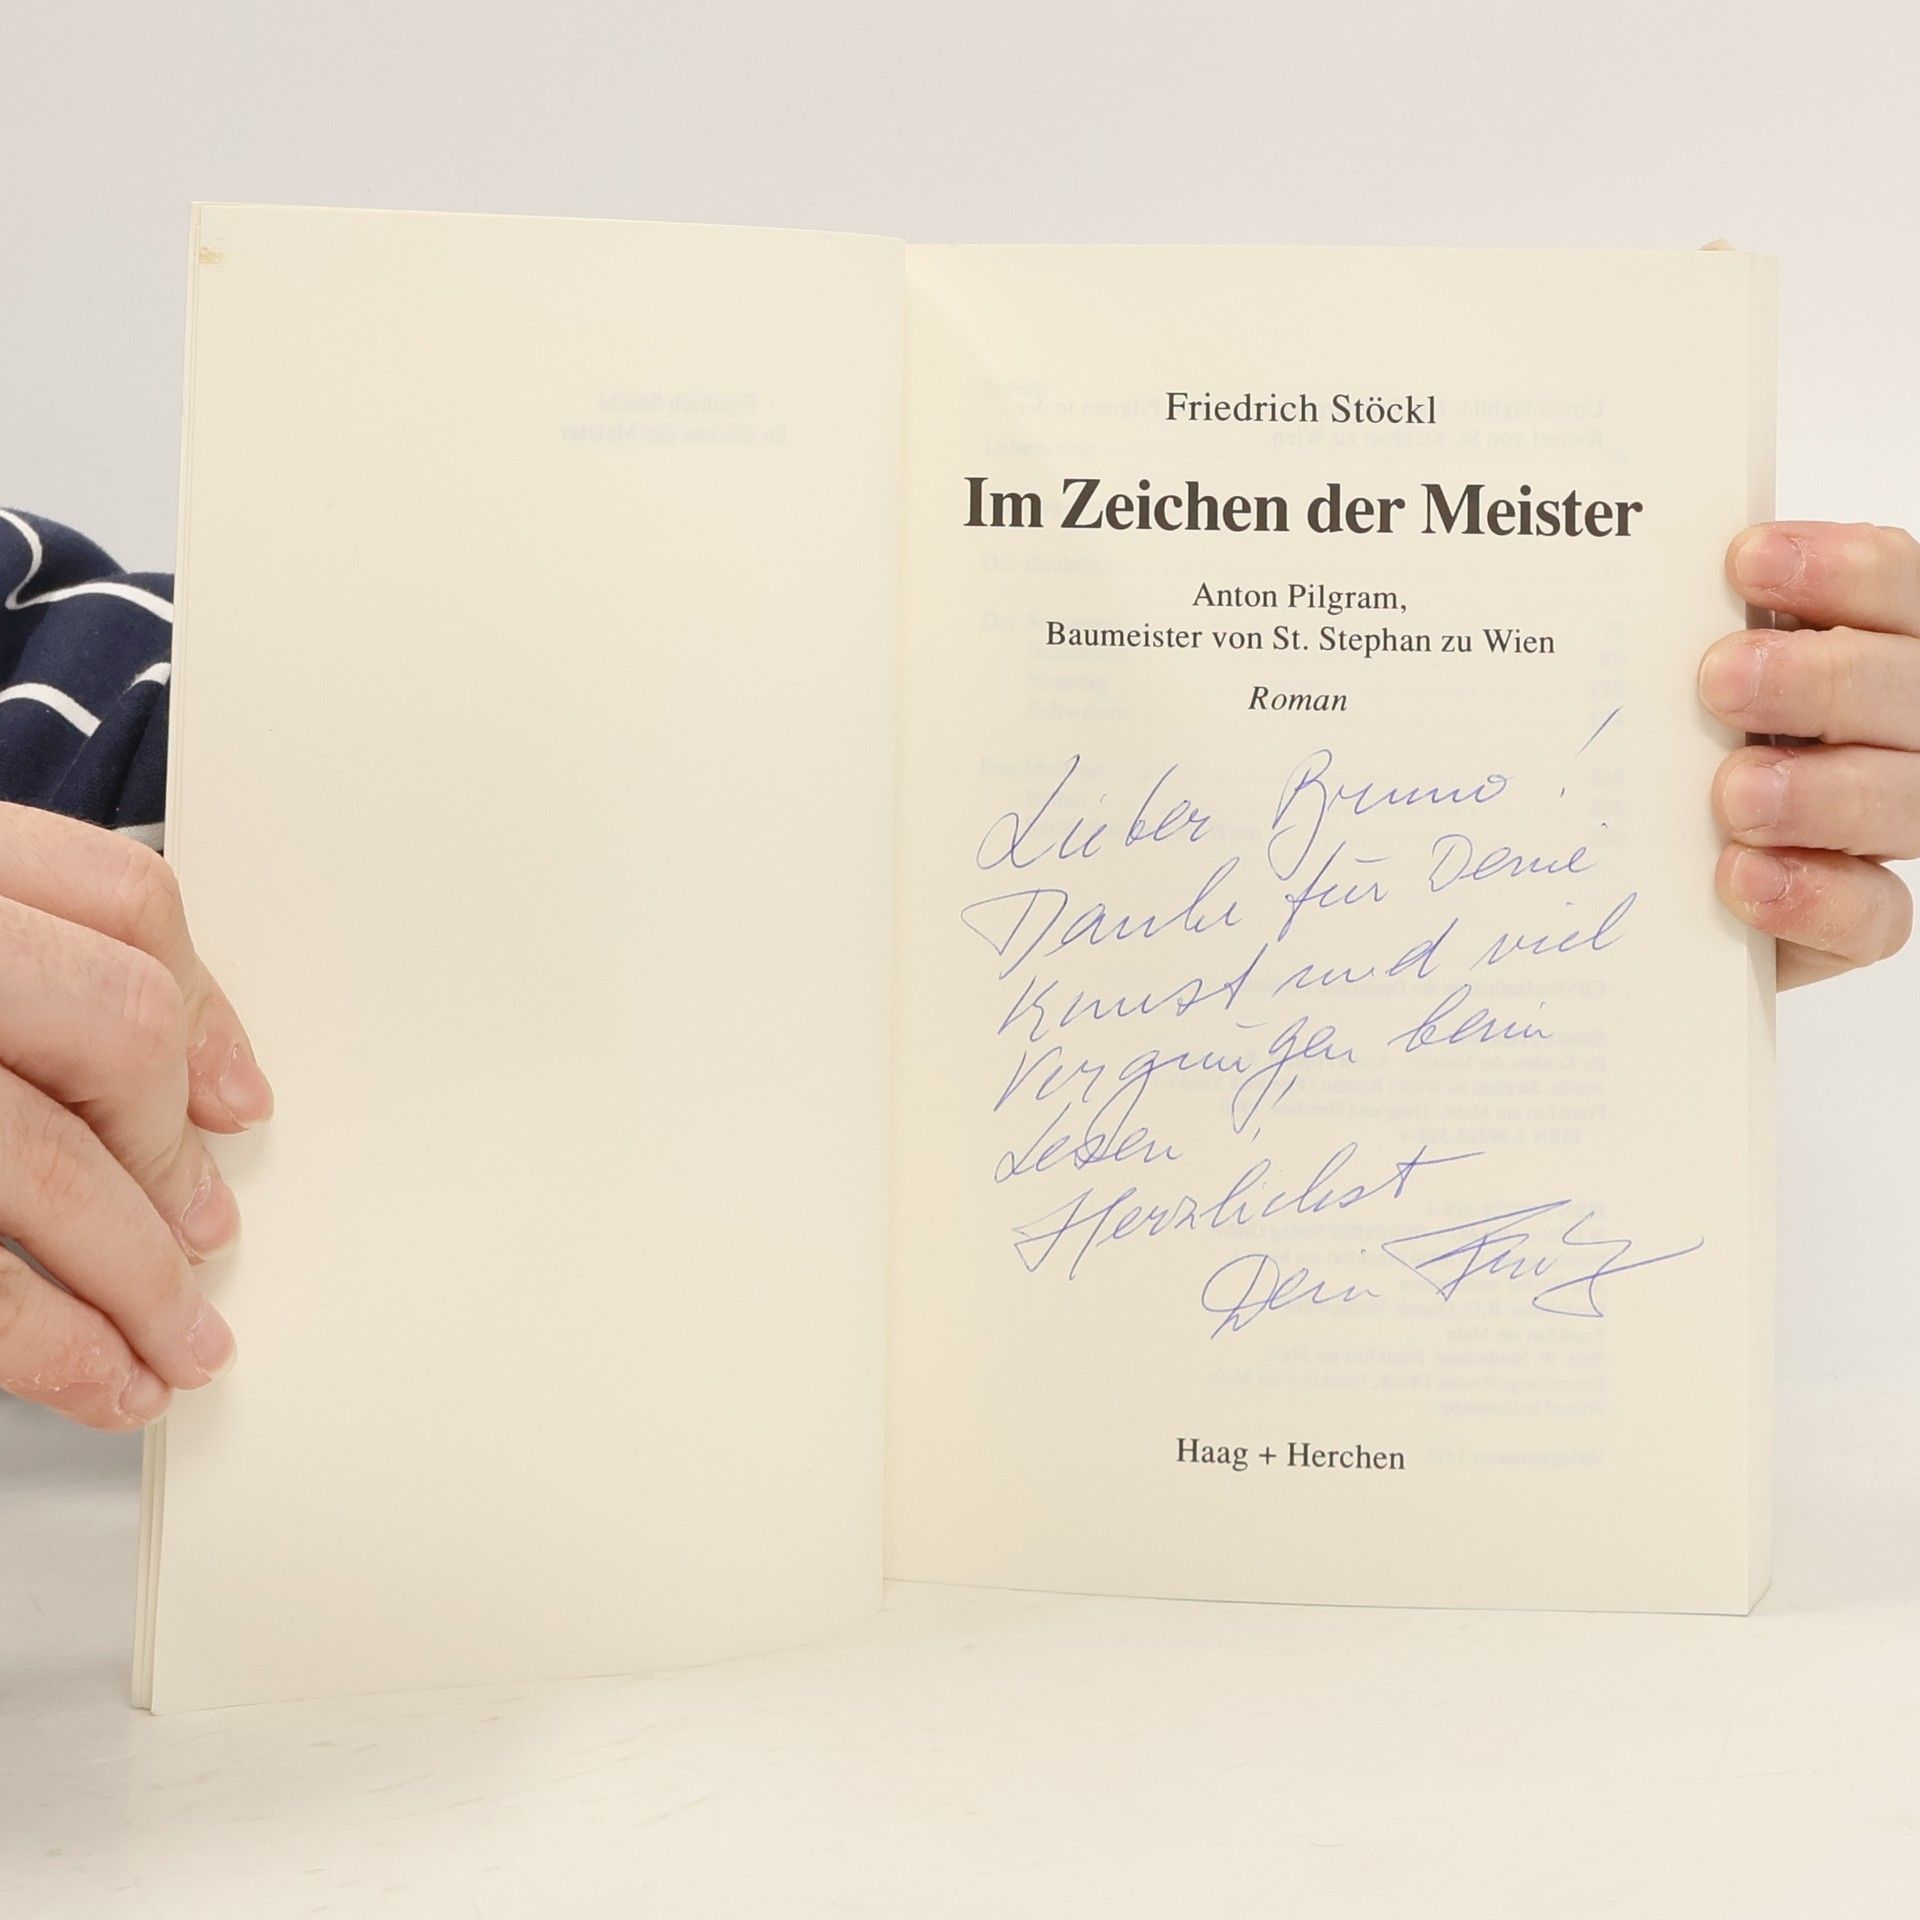 Friedrich Stöckl
Im Zeichen der Meister
Anton Pilgram,
Baumeister von St. Stephan zu Wien
Roman
Lieber Bruno!
Danke für Deine
Kunst und viel
Vergnügen beim
Lesen!
Herzlichst
Dein Fritz
Haag + Herchen